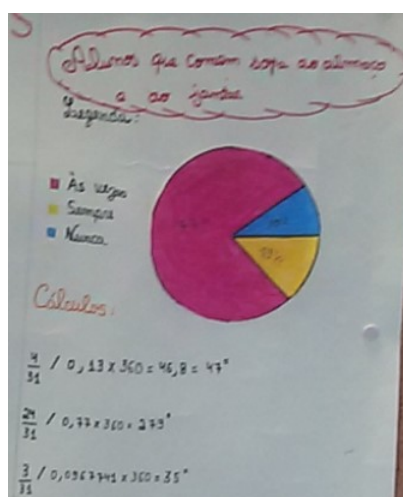 Alunos que comem sopa ao almoço
e ao jantar
Legenda:
Às vezes
Sempre
Nunca
10%
13%
Cálculos:
4/31 / 0,13 x 360 = 46,8 = 47°
24/31 / 0,77 x 360 = 279°
3/31 / 0,0967741 x 360 = 35°